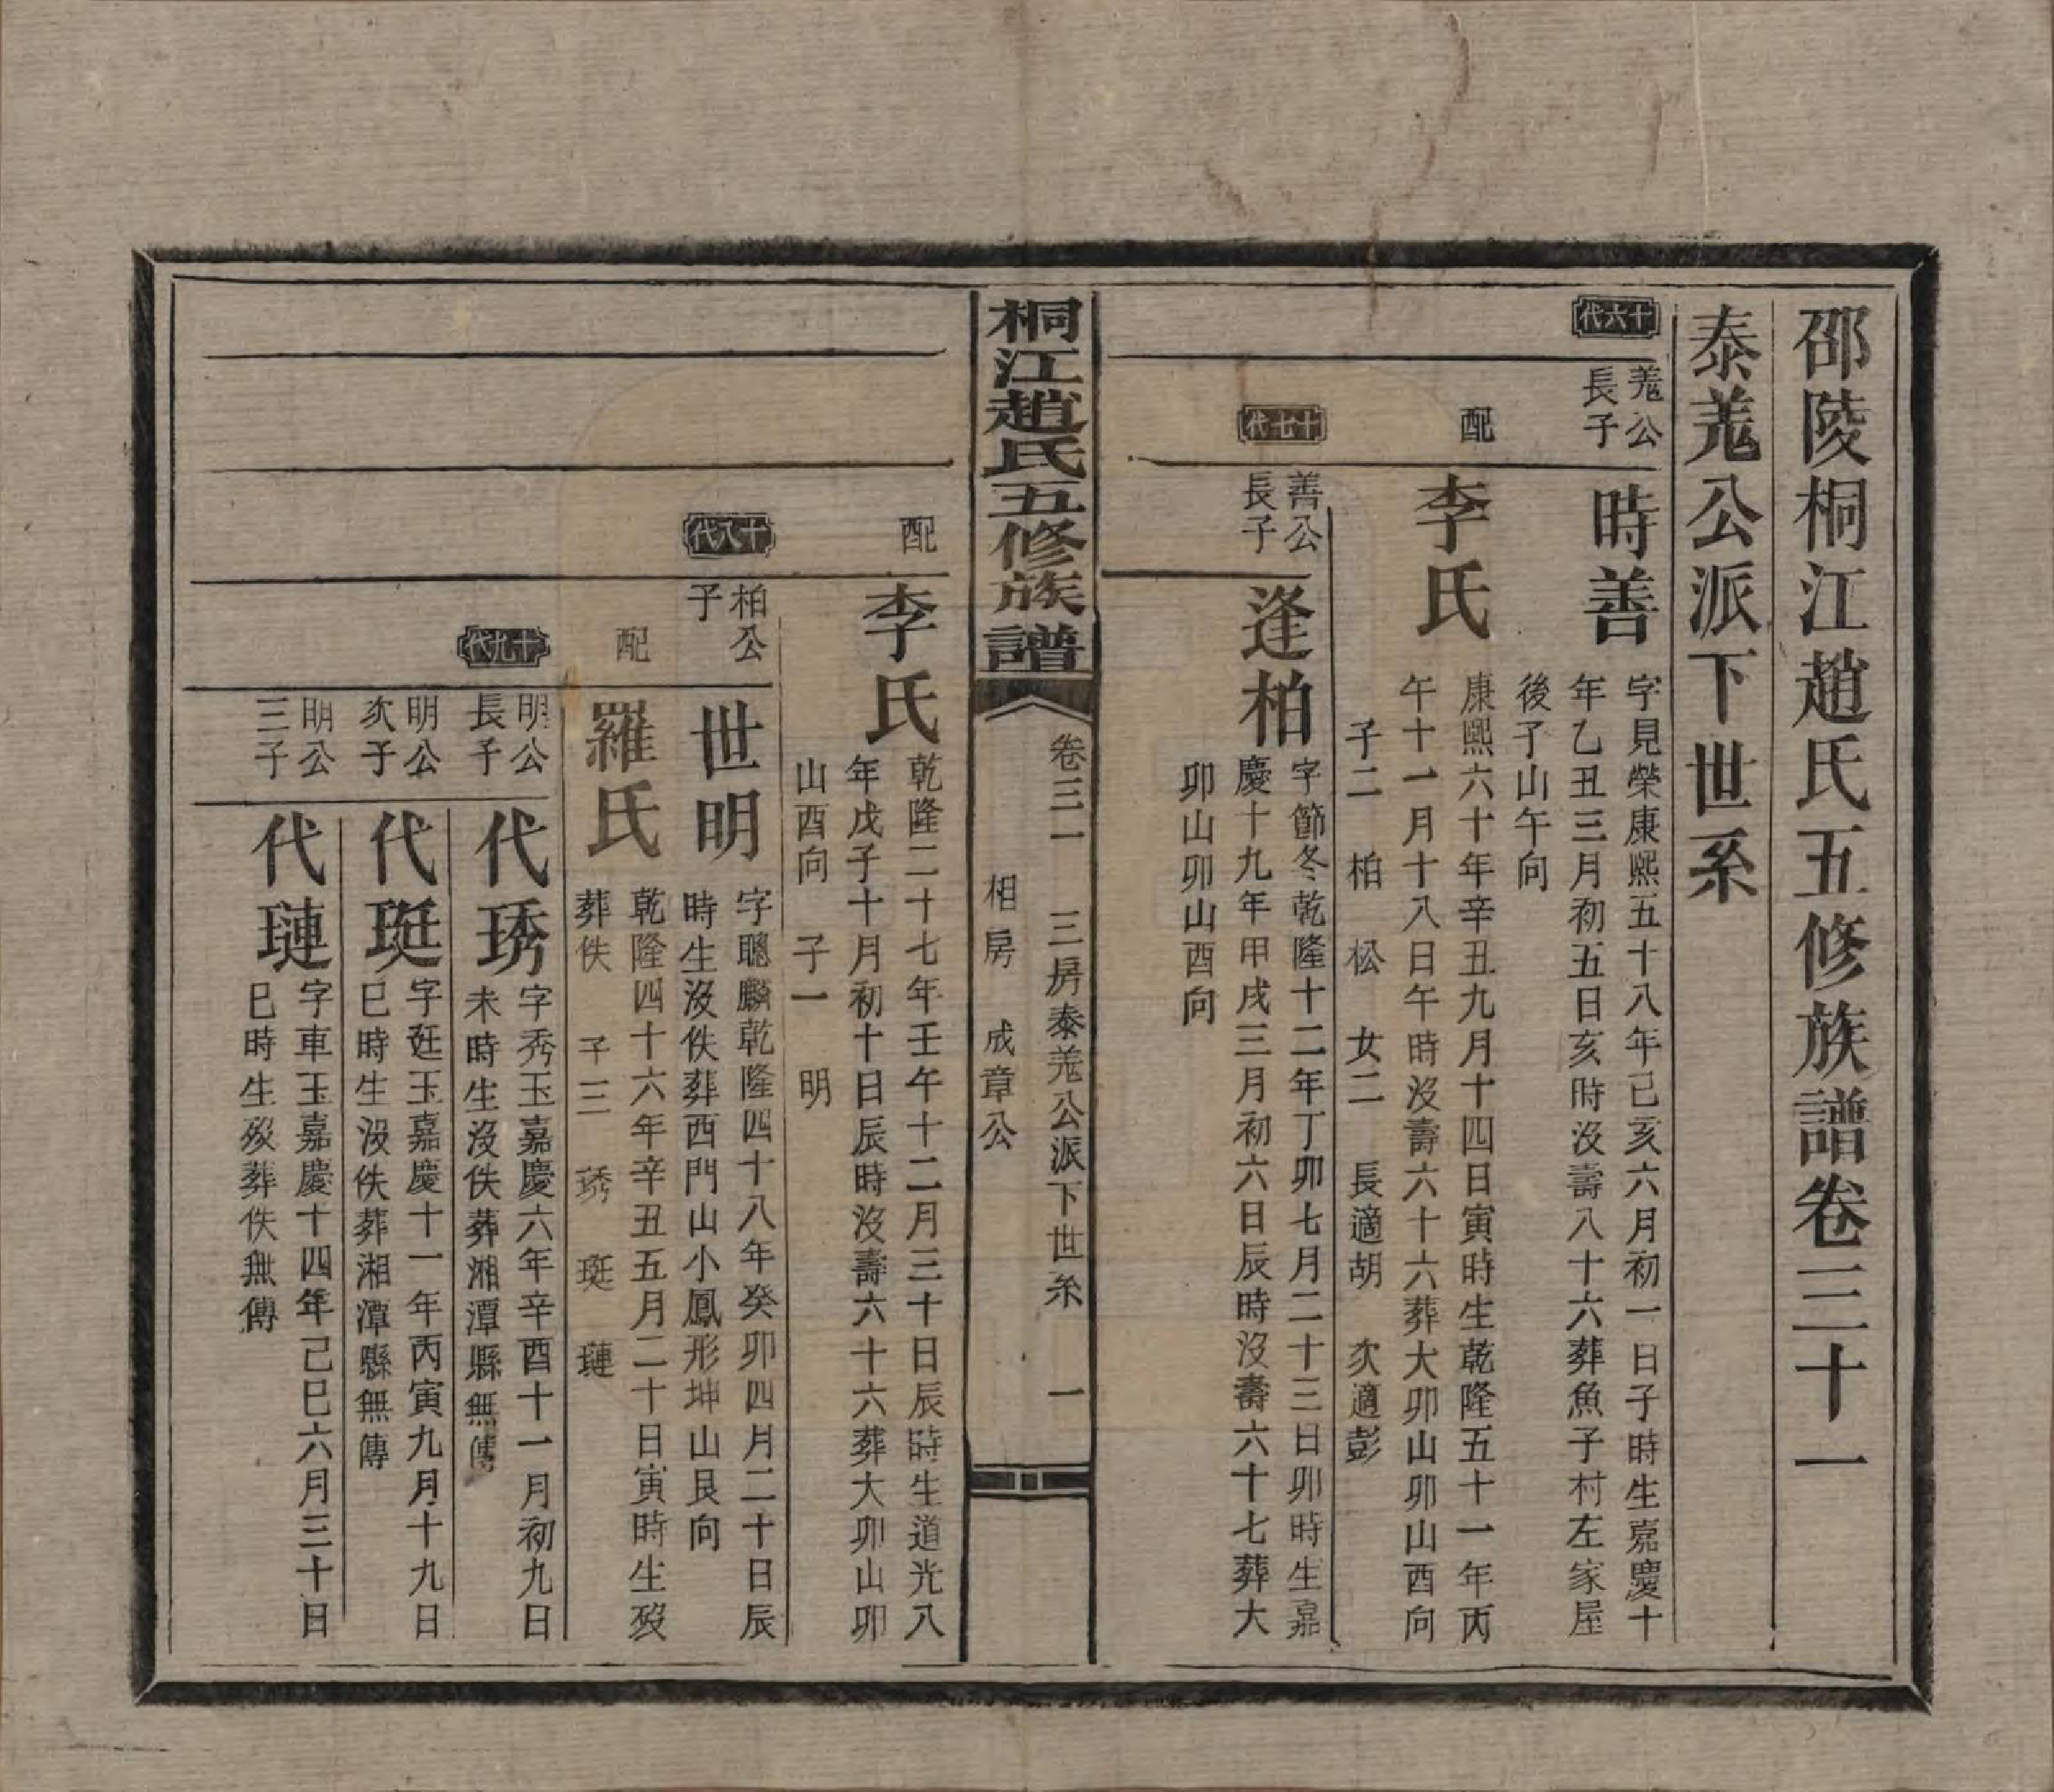 邵陵桐江趙氏五修族譜卷三十一
泰羗公派下世系
十六代
羗公
長子
時善
字見榮康熙五十八年己亥六月初一日子時生嘉慶十
年乙丑三月初五日亥時沒壽八十六葬魚子村左家屋
後子山午向
配
李氏
康熙六十年辛丑九月十四日寅時生乾隆五十一年丙
午十一月十八日午時沒壽六十六葬大卯山卯山酉向
子二 柏 松 女二 長適胡 次適彭
十七代
善公
長子
逢柏
字節冬乾隆十二年丁卯七月二十三日卯時生嘉
慶十九年甲戌三月初六日辰時沒壽六十七葬大
卯山卯山酉向
桐江趙氏五修族譜
卷三一 三房泰羗公派下世系 一
相房 成章公
配
李氏
乾隆二十七年壬午十二月三十日辰時生道光八
年戊子十月初十日辰時沒壽六十六葬大卯山卯
山酉向 子一 明
十八代
柏公
子
世明
字聰麟乾隆四十八年癸卯四月二十日辰
時生沒佚葬西門山小鳳形坤山艮向
配
羅氏
乾隆四十六年辛丑五月二十日寅時生歿
葬佚 子三 琇 珽 璉
十九代
明公
長子
代琇
字秀玉嘉慶六年辛酉十一月初九日
未時生沒佚葬湘潭縣無傳
明公
次子
代珽
字廷玉嘉慶十一年丙寅九月十九日
巳時生沒佚葬湘潭縣無傳
明公
三子
代璉
字車玉嘉慶十四年己巳六月三十日
巳時生歿葬佚無傳